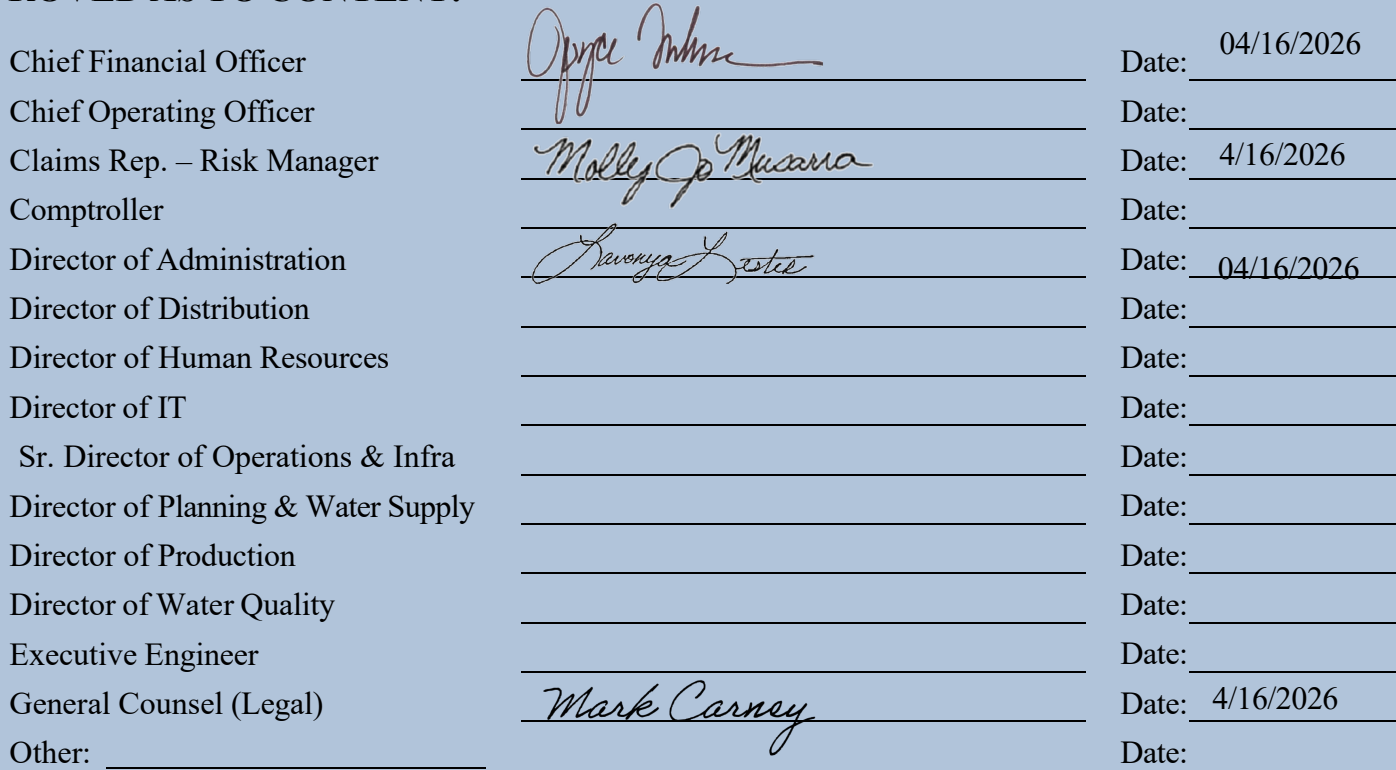 Chief Financial Officer Date: 04/16/2026
Chief Operating Officer Date:
Claims Rep. – Risk Manager Molly Jo Musarra Date: 4/16/2026
Comptroller Date:
Director of Administration Lavonya Lester Date: 04/16/2026
Director of Distribution Date:
Director of Human Resources Date:
Director of IT Date:
Sr. Director of Operations & Infra Date:
Director of Planning & Water Supply Date:
Director of Production Date:
Director of Water Quality Date:
Executive Engineer Date:
General Counsel (Legal) Mark Carney Date: 4/16/2026
Other: Date: